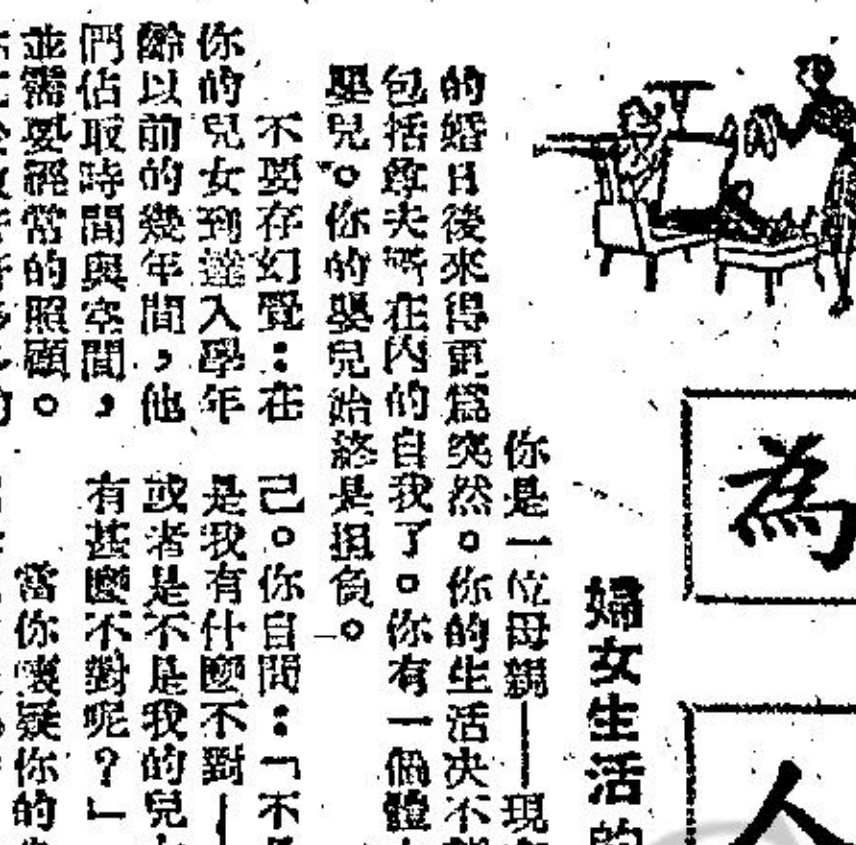 為
人
婦女生活的
你是一位母親——現
的婚日後來得更為突然。你的生活决不
包括尊夫所在內的自我了。你有一個體
嬰兒。你的嬰兒始終是担負。
不要存幻覺：在
你的兒女到達入學年
齡以前的幾年間，他
們佔取時間與空間，
並需要經常的照顧。
己。你自問：「不
是我有什麼不對——
或者是不是我的兒
有甚麼不對呢？」
當你懷疑你的